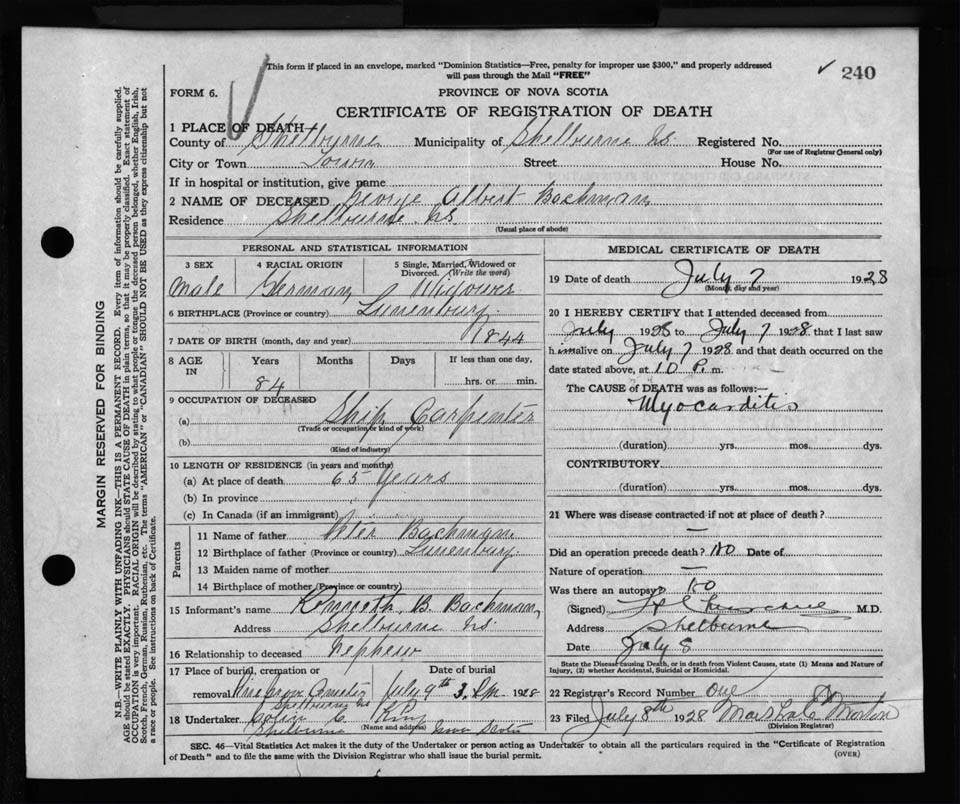 This form if placed in an envelope, marked "Dominion Statistics—Free, penalty for improper use $300," and properly addressed
will pass through the Mail "FREE"
✓ 240
FORM 6.
PROVINCE OF NOVA SCOTIA
CERTIFICATE OF REGISTRATION OF DEATH
1 PLACE OF DEATH—
County of Shelburne Municipality of Shelburne N.S. Registered No.
(For use of Registrar General only)
City or Town Town Street House No.
If in hospital or institution, give name
2 NAME OF DECEASED George Albert Bachman
Residence Shelburne N.S.
(Usual place of abode)
PERSONAL AND STATISTICAL INFORMATION
3 SEX 4 RACIAL ORIGIN 5 Single, Married, Widowed or
Divorced. (Write the word)
Male German Widower
6 BIRTHPLACE (Province or country) Lunenburg.
7 DATE OF BIRTH (month, day and year) 1844
8 AGE IN Years Months Days If less than one day,
84 hrs. or min.
9 OCCUPATION OF DECEASED
(a) Ship Carpenter
(Trade or occupation or kind of work)
(b)
(Kind of industry)
10 LENGTH OF RESIDENCE (in years and months)
(a) At place of death 65 Years
(b) In province
(c) In Canada (if an immigrant)
Parents
11 Name of father Peter Bachman
12 Birthplace of father (Province or country) Lunenburg.
13 Maiden name of mother
14 Birthplace of mother (Province or country)
15 Informant's name Kenneth B. Bachman,
Address Shelburne N.S.
16 Relationship to deceased Nephew
17 Place of burial, cremation or Date of burial
removal Pine Grove Cemetery July 9th 3. P.M. 1928
Shelburne N.S.
18 Undertaker C. King
(Name and address)
Shelburne Nova Scotia
MEDICAL CERTIFICATE OF DEATH
19 Date of death July 7 1928
(Month, day and year)
20 I HEREBY CERTIFY that I attended deceased from
July 1928 to July 7 1928 that I last saw
him alive on July 7 1928 and that death occurred on the
date stated above, at 10 P. m.
The CAUSE of DEATH was as follows:—
Myocarditis
(duration) yrs. mos. dys.
CONTRIBUTORY
(duration) yrs. mos. dys.
21 Where was disease contracted if not at place of death?
—
Did an operation precede death? No Date of
Nature of operation —
Was there an autopsy? No
(Signed) M.D.
Address Shelburne
Date July 8
State the Disease causing Death, or in death from Violent Causes, state (1) Means and Nature of
Injury, (2) whether Accidental, Suicidal or Homicidal.
22 Registrar's Record Number one
23 Filed July 8th 1928 Morton
(Division Registrar)
SEC. 46—Vital Statistics Act makes it the duty of the Undertaker or person acting as Undertaker to obtain all the particulars required in the "Certificate of Registration
of Death" and to file the same with the Division Registrar who shall issue the burial permit.
(OVER)
MARGIN RESERVED FOR BINDING
N.B.—WRITE PLAINLY WITH UNFADING INK—THIS IS A PERMANENT RECORD. Every item of information should be carefully supplied.
AGE should be stated EXACTLY. PHYSICIANS should STATE CAUSE OF DEATH in plain terms, so that it may be properly classified. Exact statement of
OCCUPATION is very important. RACIAL ORIGIN will be described by stating to what people or tongue the deceased person belonged, whether English, Irish,
Scotch, French, German, Russian, Ruthenian, etc. The terms "AMERICAN" or "CANADIAN" SHOULD NOT BE USED as they express citizenship but not
a race or people. See instructions on back of Certificate.